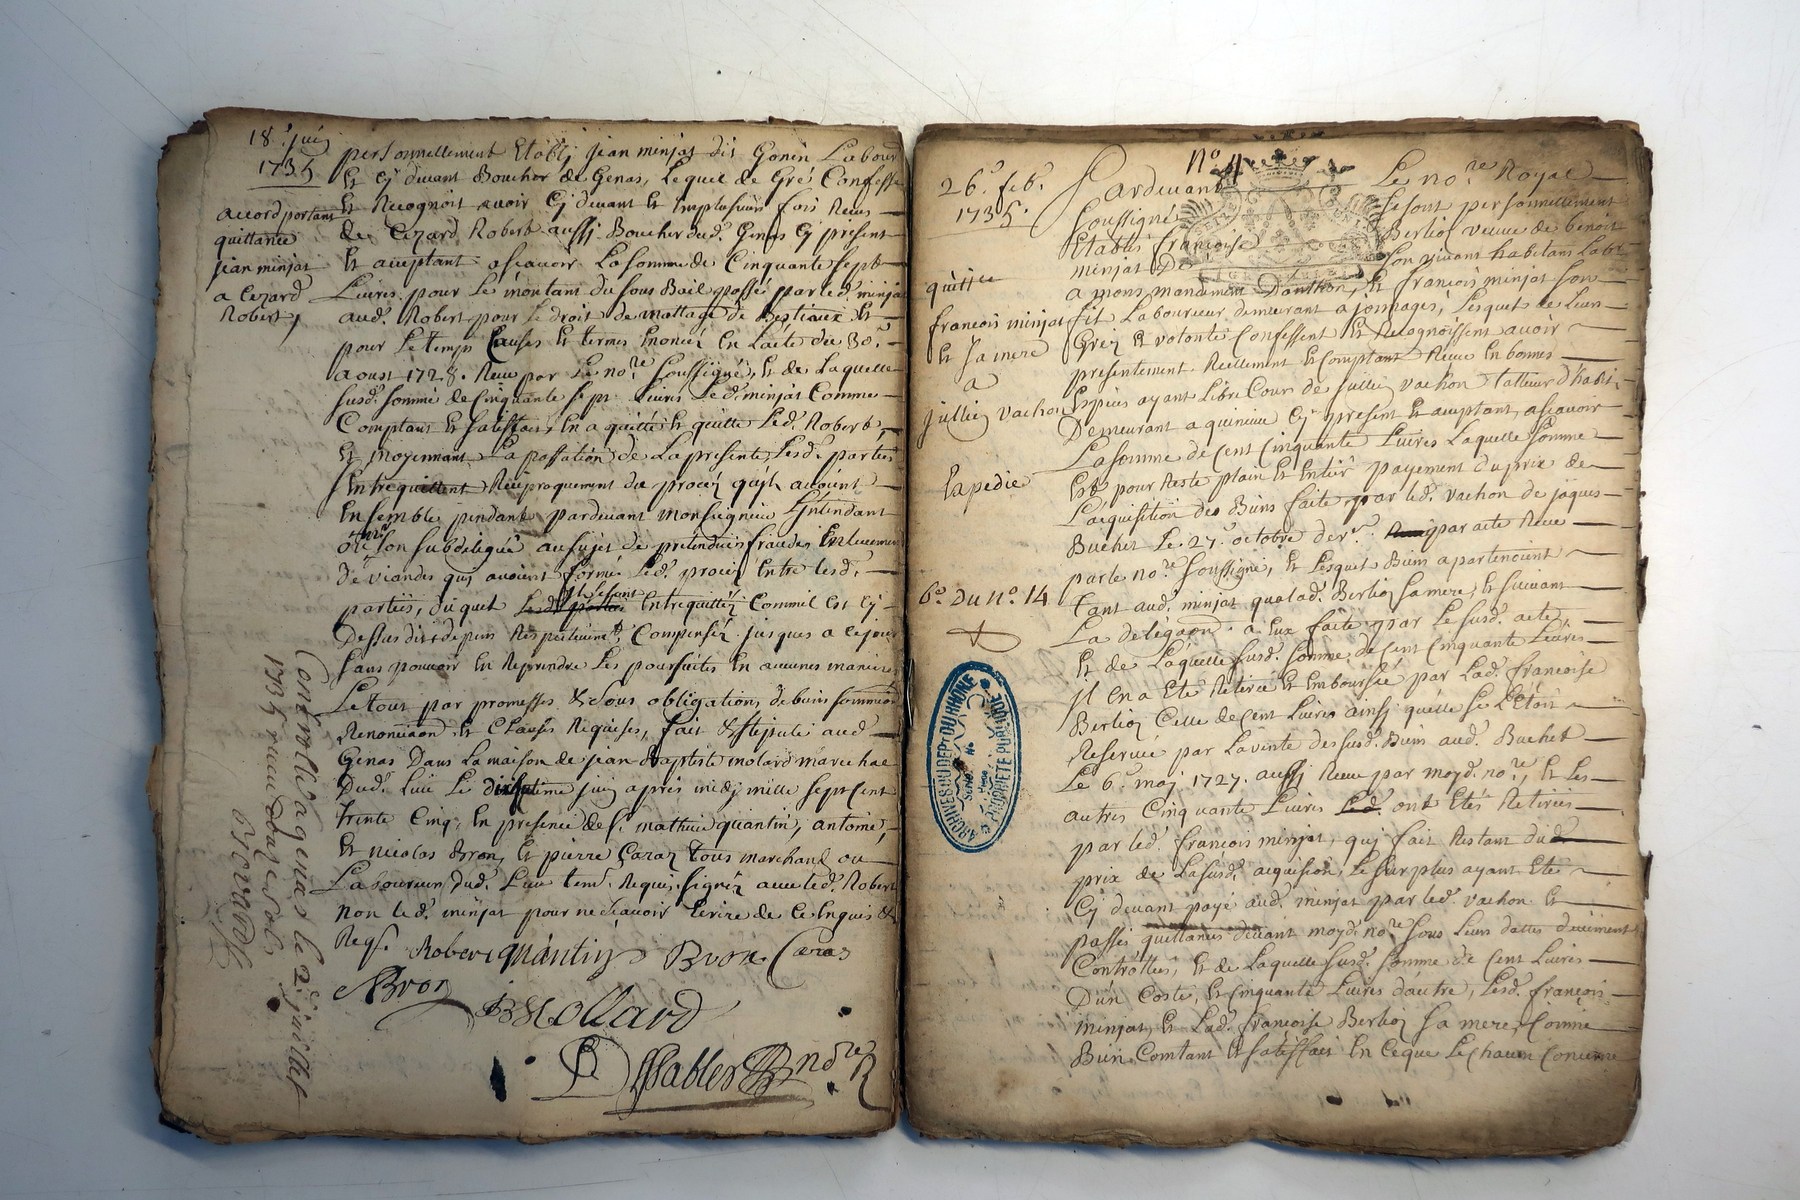 18.e juin
1735
accord portant
quittance
jean minjat
a Cezard
Robert
personnellement Etably jean minjat dit Gonin Labour
Et cy devant Boucher de Genas, Lequel de Gré Confesse
Et Recognoit avoir cy devant Et en plusieurs fois Receu
de Cezard Robert aussy Boucher dud. Genas cy present
Et aceptant asçavoir La somme de Cinquante sept
Livres pour Le montant du sous Bail passé par led. minjat
aud. Robert pour Le droit de mattage de Bestiaux Et
pour Le temps Causes Et termes Enoncés En L'acte du 30.e
aoust 1728. Receu par Le no.re soussigné, Et de Laquelle
susd. somme de Cinquante sept Livres Led. minjat Comme
Comptant Et satisfait, En a quitté Et quitte Led. Robert
Et moyennant La passation de La presente, Lesd. parties
sentrequittent Reciproquement du procez qu'ils avoient
Ensemble pendant pardevant monseigneur L'Intendant
ou son subdelegué au sujet de pretendues fraudes
de viandes qui avoient formé Led. procez Entre lesd.
parties, duquel Entrequittez Comme Est cy
Dessus dit depens Respectivem.t Compensez jusques a ce jour
sans pouvoir En Reprendre Les poursuites En aucunes manieres
Le tout par promesses & sous obligations de biens
Renonciaõn Et Clauses Requises, fait & stipulé aud.
Genas Dans La maison de jean Baptiste molard marechal
Dud. Lieu Le juin après midy mille sept Cent
trente Cinq, En presence de s.r mathieu quantin, antoine,
Et nicolas Bron, Et pierre Caraz tous marchand ou
Laboureurs dud. Lieu tem. Requis signéz avec led. Robert
non Led. minjat pour ne sçavoir Ecrire de ce Enquis &
Reqs.
Robert quantin Bron Caras
ABron
JB Mollard
Sablier no.re R
Controllé a genas le 2.e juillet
1735 receu douze sols
26.e feb.
1735.
quittce
francois minjat
Et sa mere
a
jullien vachon
Expedié
6.e Du N.o 14
N.o 4
Pardevant Le no.re Royal
soussigné se sont personnellement
Etablis francoise Berlioz veuve de benoit
minjat De son vivant habitant Labr
a mons mandement Danthon, Et francois minjat son
fit Laboureur demeurant a jonnages, Lesquels de Leur
Gréz Et volonté Confessent Et Recognoissent avoir
presentement Reellement Et Comptant Receu En bonnes
Espèces ayant Libre Cours de jullien vachon tailleur d'habits
Demeurant a quincieu cy present Et aceptant, asçavoir
La somme de Cent Cinquante Livres Laquelle somme
Est pour Reste plain Et Entier payement du prix de
L'acquisition des Biens faite par led. vachon de jaques
Buchet Le 27.e octobre der.r par acte Receu
par le no.re soussigné, Et Lesquels Biens apartenoient
tant aud. minjat qu'a lad. Berlioz sa mere, Et suivant
La delégaõn a Eux faite par Le susd. acte,
Et de Laquelle susd. somme de Cent Cinquante Livres
Il en a Eté Retirée Et Emboursée par Lad. francoise
Berlioz Celle de Cent Livres ainsy qu'elle se L'Etoit
Reservée par La vente des susd. Biens aud. Buchet
Le 6.e may 1727. aussy Receu par moyd. no.re, Et Les
autres Cinquante Livres ont Etés Retirées
par led. francois minjat, qui fait Restant dud.
prix de La susd. acquision, Le surplus ayant Eté
cy devant payé aud. minjat par led. vachon Et
passés quittances devant moyd. no.re sous Leurs dattes düement
Controllées, Et de Laquelle susd. somme de Cent Livres
D'un Costé, Et Cinquante Livres d'autre, Lesd. francois
minjat, Et Lad. francoise Berlioz sa mere, Comme
Bien Comtant Et satisfait En Ceque Le chacun Concerne
ARCHIVES DU DEPT DU RHONE
PROPRIETE PUBLIQUE